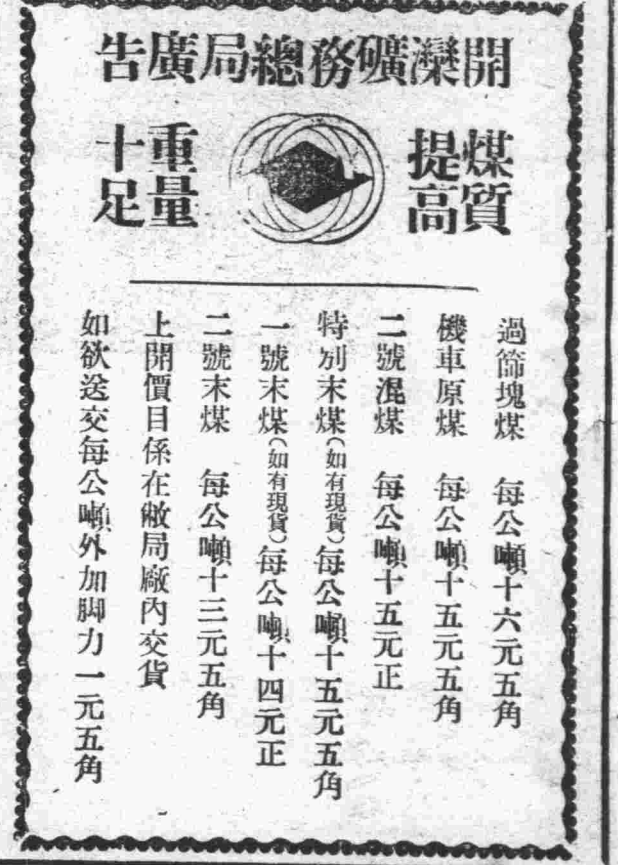 開灤礦務總局廣告
煤質
提高
重量
十足
過篩塊煤 每公噸十六元五角
機車原煤 每公噸十五元五角
二號混煤 每公噸十五元正
特別末煤(如有現貨)每公噸十五元五角
一號末煤(如有現貨)每公噸十四元正
二號末煤 每公噸十三元五角
上開價目係在敝局廠內交貨
如欲送交每公噸外加脚力一元五角